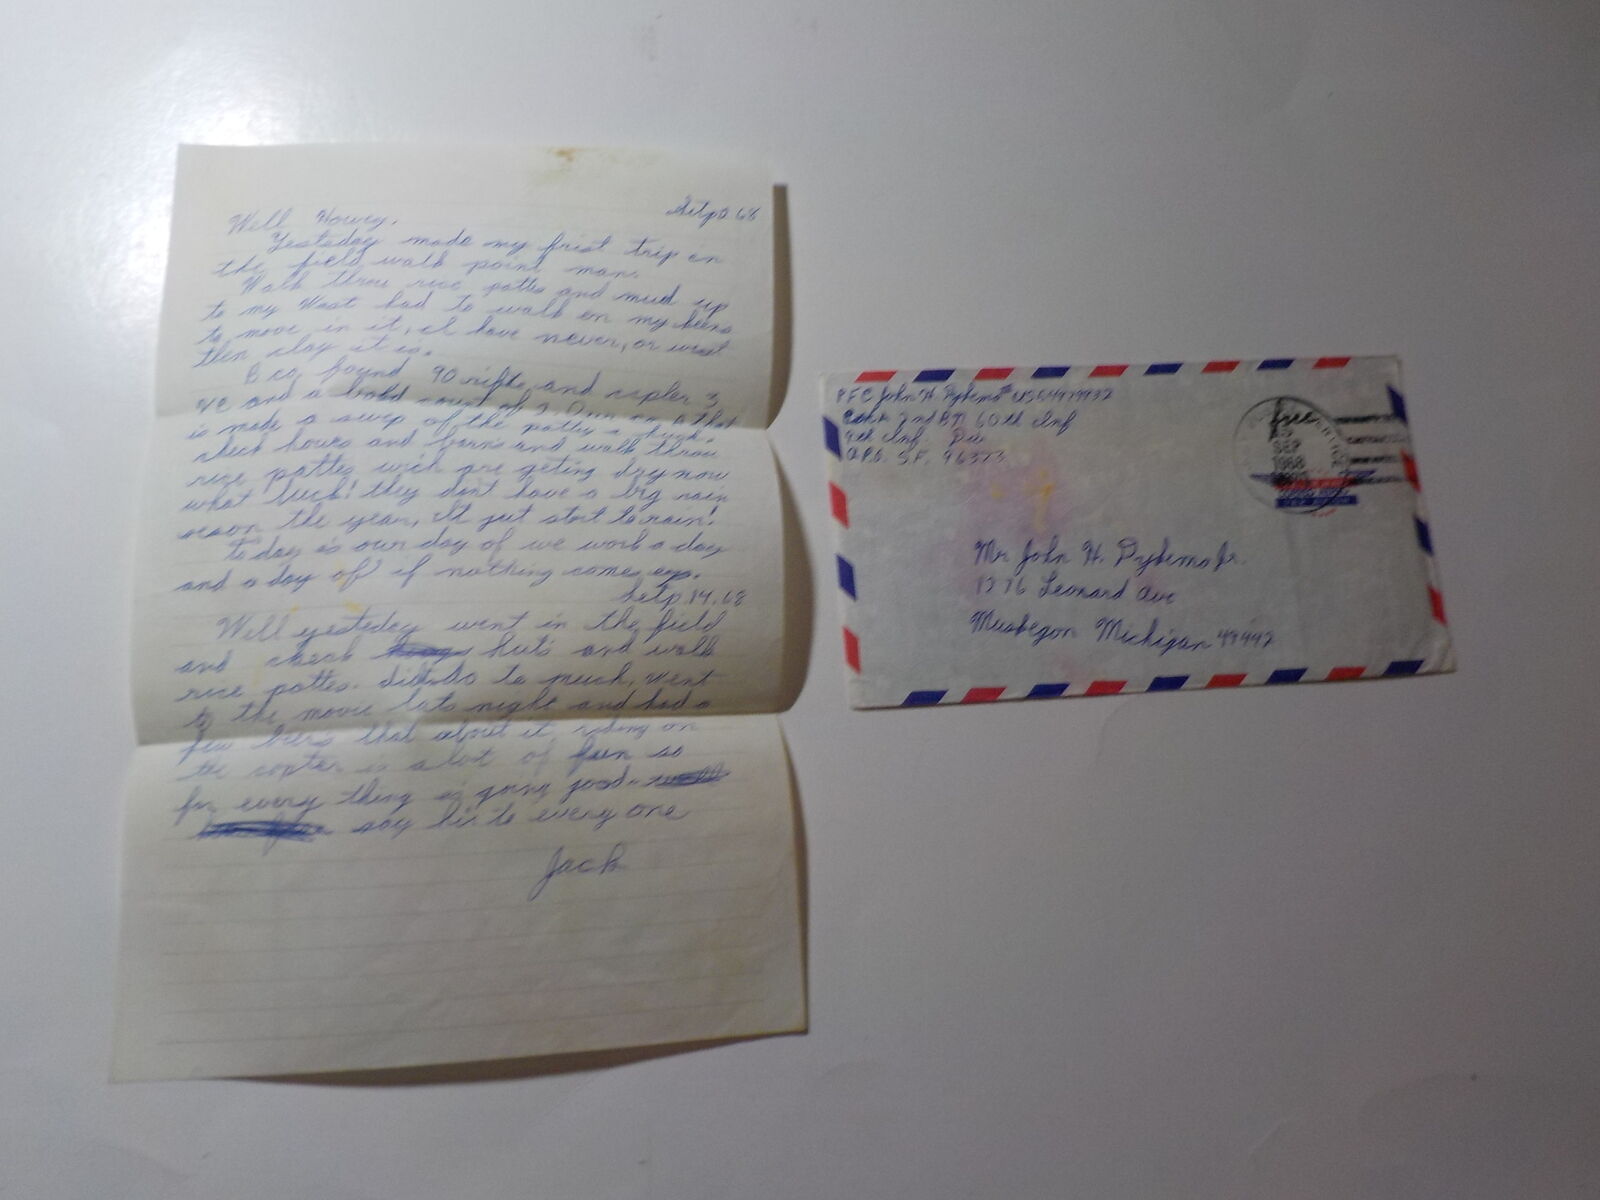 Well Howey,
Yesteday made my frist trip in
the field, walk point man.
Walk threw rice pattes and mud up
to my West had to walk on my
to move in it, I have never, or
then clay it is.
B co. found 90 rifte and 3
VC and a
is made a swep of the pattes
check hours and barns and walk threw
rice pattes wich are geting dry now
what luck! they dont have a big rain
season the year, it just start to rain!
To day is our day of we work a day
and a day off if nothing comes up.
Setp. 14. 68
Well yesteday went in the field
and check huts and walk
rice pattes. didt do to much, went
to the movie lats night and had a
few beers that about it riding on
the copter is a lot of fun so
far every thing is going good.
say hi to every one
Jack
PFC John H. Dykema
2nd BN 60th Inf
9th Inf. Div
A.P.O. S.F. 96373
free
SEP
1968
Mr John H. Dykema Jr.
1376 Leonard Ave
Muskegon Michigan 49442